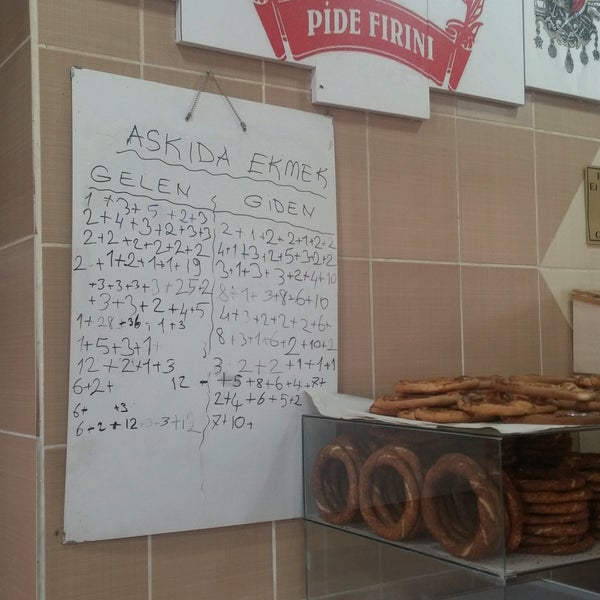 PİDE FIRINI
ASKIDA EKMEK
GELEN
1 +3+ 5 +2+3
2+4+3+2+3+3
2+2+2+2+2+2
2+1+2+1+1+19
+3+3+3+3+25+2
+3+3+2+4+5
1+28+36 1+3
1+5+3+1+
12+2+1+3
6+2+ 12
6+ +3
6+2+12+3+3+12
GİDEN
2+1+2+2+1+2+2
4+1+3+2+5+3+2+2
3+1+3+3+2+4+10
8+1+3+8+6+10
4+3+2+2+2+6+
8+3+1+6+2+10+2
3 2+2+1+1+1
+5+8+6+4+7+
2+4+6+5+2
7+10+